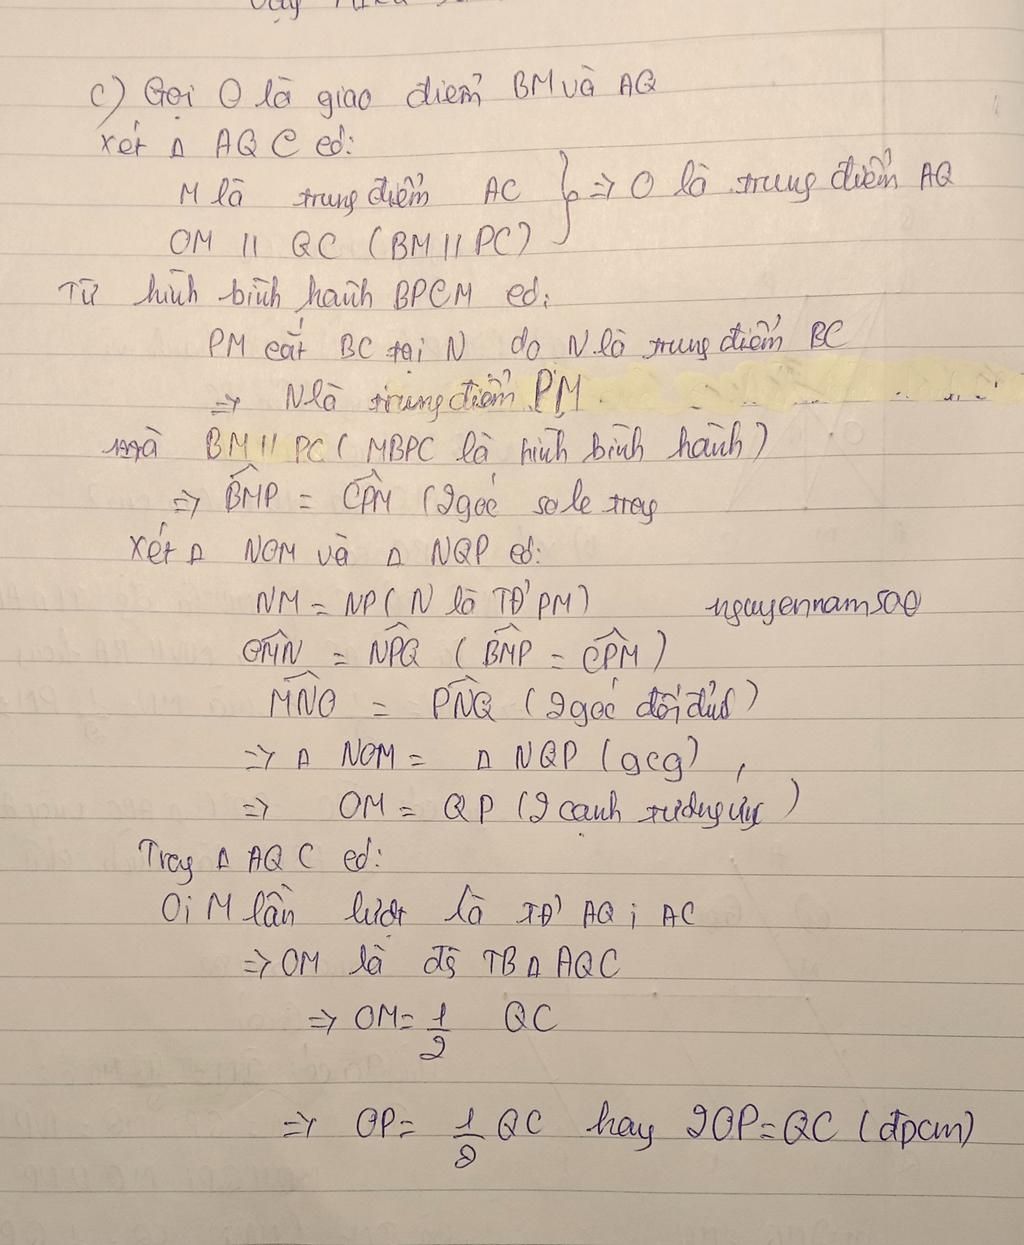 c) Gọi O là giao điểm BM và AQ
xét Δ AQC có:
M là trung điểm AC } => O là trung điểm AQ
OM // QC (BM // PC)
Từ hình bình hành BPCM có:
PM cắt BC tại N do N là trung điểm BC
=> N là trung điểm PM
mà BM // PC ( MBPC là hình bình hành)
=> BMP = CPM (2 góc so le trog
xét Δ NOM và Δ NQP có:
NM = NP ( N là TĐ' PM) nguyennam500
OMN = NPQ ( BMP = CPM )
MNO = PNQ (2 góc đối đỉnh)
=> Δ NOM = Δ NQP (gcg)
=> OM = QP (2 cạnh tương ứng)
Trog Δ AQC có:
O; M lần lượt là TĐ' AQ ; AC
=> OM là đg TB Δ AQC
=> OM = 1/2 QC
=> QP = 1/2 QC hay 2QP = QC (đpcm)